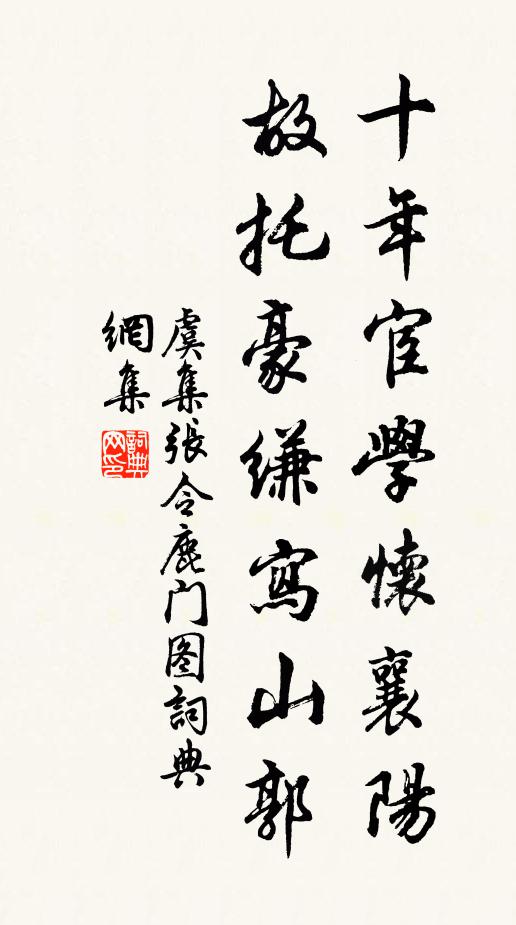 十年宦學懷襄陽
故托豪縑寫山郭
虞集張令鹿门图詞典
網集
詞典网印